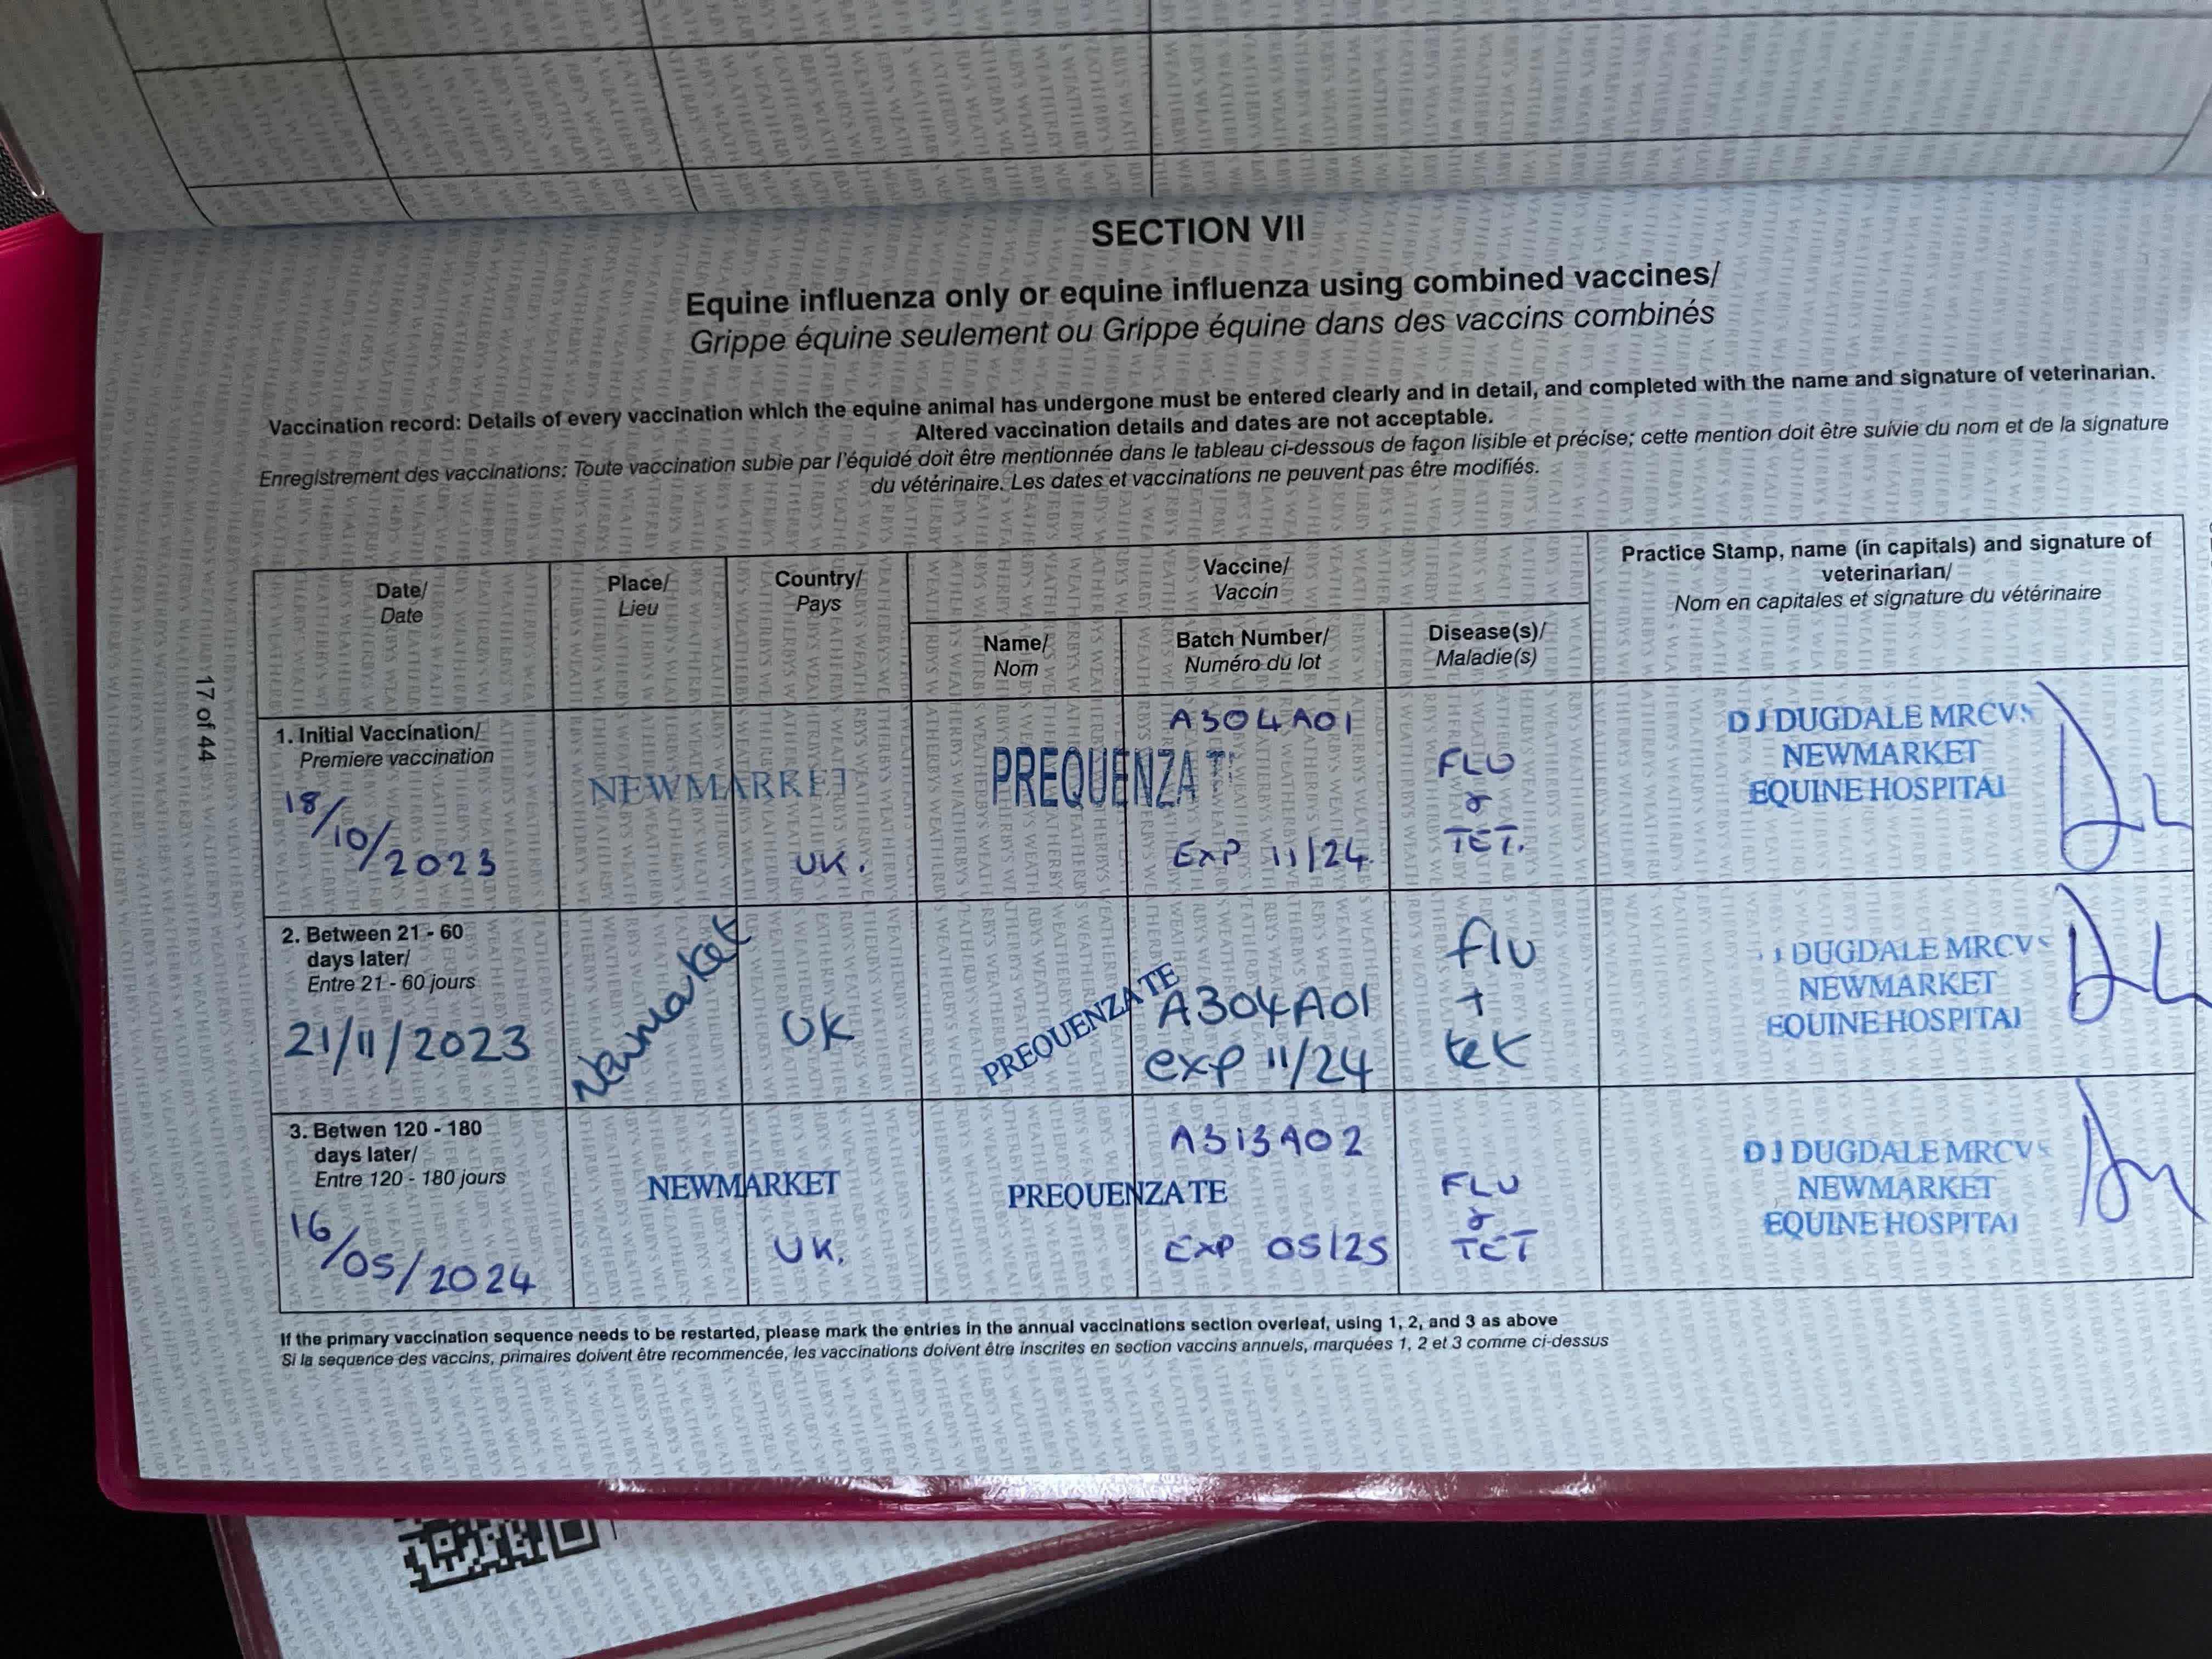 SECTION VII
Equine influenza only or equine influenza using combined vaccines/
Grippe équine seulement ou Grippe équine dans des vaccins combinés
Vaccination record: Details of every vaccination which the equine animal has undergone must be entered clearly and in detail, and completed with the name and signature of veterinarian.
Altered vaccination details and dates are not acceptable.
Enregistrement des vaccinations: Toute vaccination subie par l'équidé doit être mentionnée dans le tableau ci-dessous de façon lisible et précise; cette mention doit être suivie du nom et de la signature
du vétérinaire. Les dates et vaccinations ne peuvent pas être modifiés.
Date/
Date
Place/
Lieu
Country/
Pays
Vaccine/
Vaccin
Name/
Nom
Batch Number/
Numéro du lot
Disease(s)/
Maladie(s)
Practice Stamp, name (in capitals) and signature of
veterinarian/
Nom en capitales et signature du vétérinaire
1. Initial Vaccination/
Premiere vaccination
18/10/2023
NEWMARKET
UK.
PREQUENZA TE
A304A01
EXP 11/24
FLU
&
TET.
D J DUGDALE MRCVS
NEWMARKET
EQUINE HOSPITAL
2. Between 21 - 60
days later/
Entre 21 - 60 jours
21/11/2023
Newmarket
UK
PREQUENZA TE
A304A01
exp 11/24
flu
+
tet
D J DUGDALE MRCVS
NEWMARKET
EQUINE HOSPITAL
3. Betwen 120 - 180
days later/
Entre 120 - 180 jours
16/05/2024
NEWMARKET
UK.
PREQUENZA TE
A313A02
EXP 05/25
FLU
&
TET
D J DUGDALE MRCVS
NEWMARKET
EQUINE HOSPITAL
If the primary vaccination sequence needs to be restarted, please mark the entries in the annual vaccinations section overleaf, using 1, 2, and 3 as above
Si la sequence des vaccins, primaires doivent être recommencée, les vaccinations doivent être inscrites en section vaccins annuels, marquées 1, 2 et 3 comme ci-dessus
17 of 44
WEATHERBYS